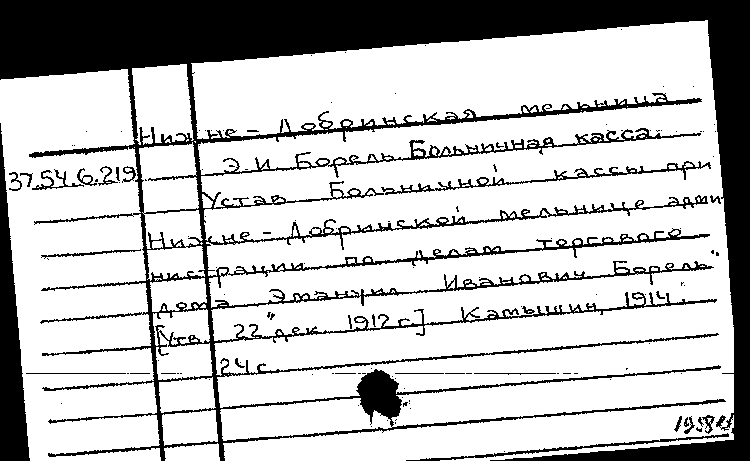 Нижне - Добринская мельница
37.54.6.219 Э.И. Борель. Больничная касса.
Устав Больничной кассы при
Нижне - Добринской мельнице адми
нистрации по делам торгового
дома Эмануил Иванович Борель"
[Утв. 22 "дек. 1912 г.] Камышин, 1914.
24 с.